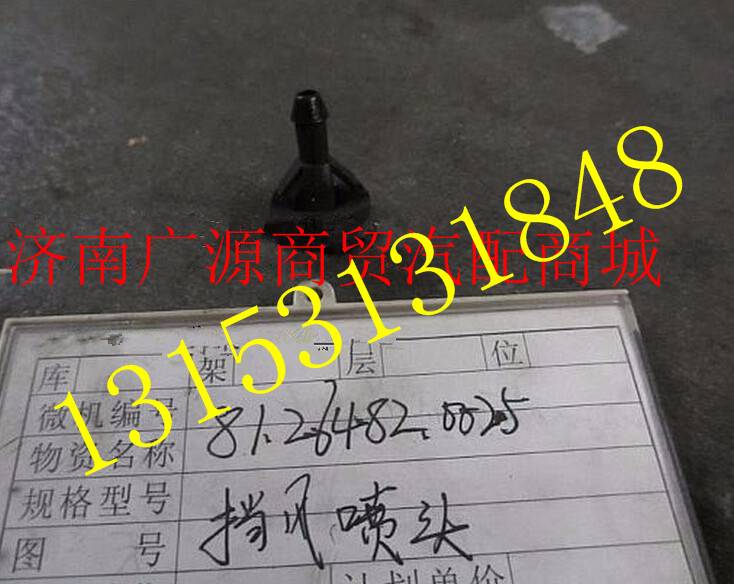 济南广源商贸汽配商城
13153131848
库 架 层 位
微机编号 81.26482.0025
物资名称
规格型号 挡风喷头
图 号
计划单价